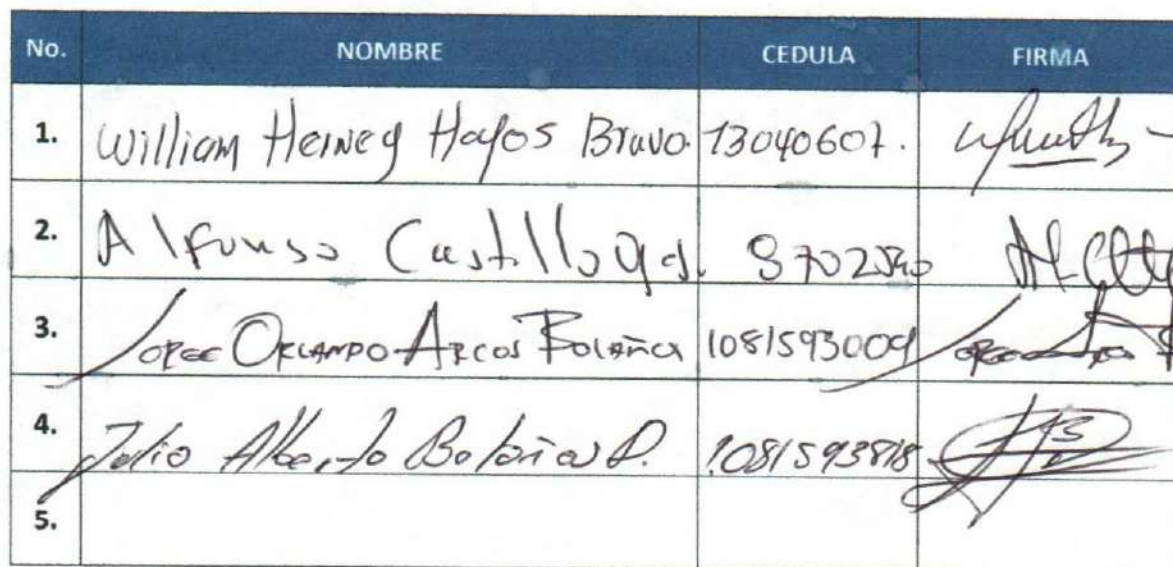 No. NOMBRE CEDULA FIRMA
1. William Herney Hoyos Bravo. 13040607.
2. Alfonso Castillo
3. Jorge Orlando Arcos Bolaños 1081593009 Jorge
4. Julio Alberto Bolaños D. 1081593818
5.